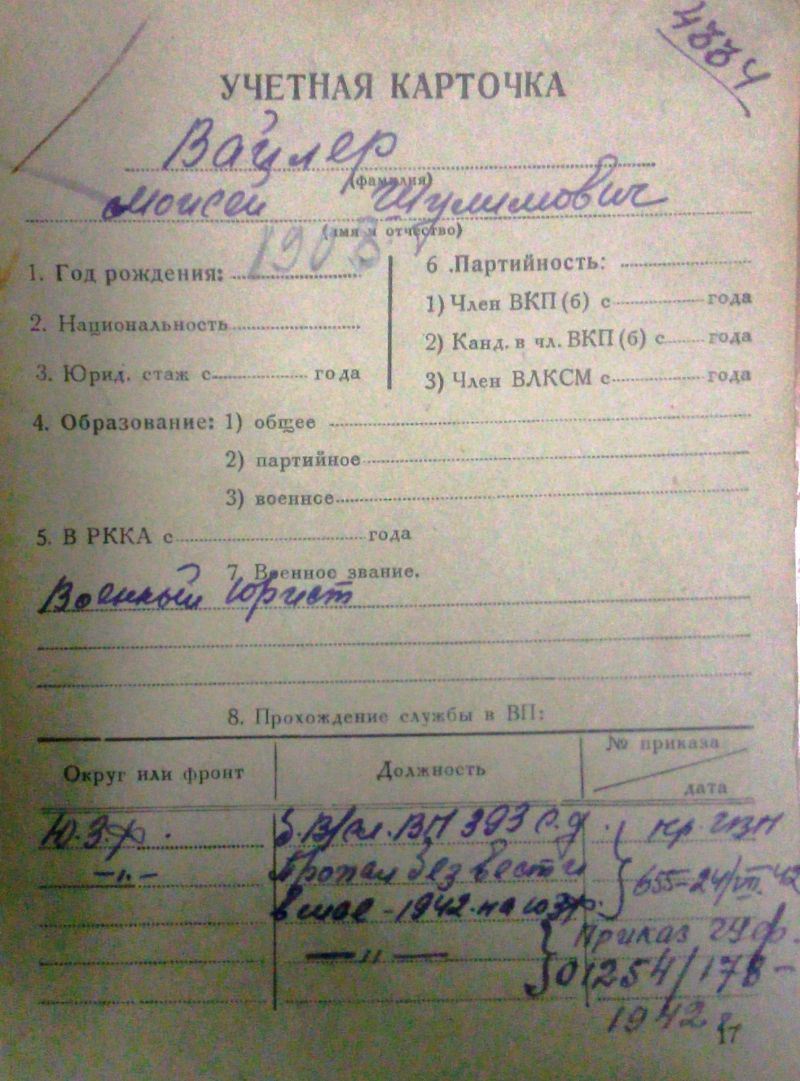 УЧЕТНАЯ КАРТОЧКА
Вайлер
(фамилия)
Моисей Шулимович
(имя и отчество)
1. Год рождения: 1908
2. Национальность
3. Юрид. стаж с года
6. Партийность:
1) Член ВКП(б) с года
2) Канд. в чл. ВКП(б) с года
3) Член ВЛКСМ с года
4. Образование: 1) общее
2) партийное
3) военное
5. В РККА с года
7. Военное звание.
Военный юрист
8. Прохождение службы в ВП:
Округ или фронт Должность № приказа дата
Ю.З.ф. ВП 393 с.д. пр.
—„— Пропал без вести 655-24/VII.42
в мае-1942 на юзф.
—„— Приказ ГУФ.
01254/178-
1942 г